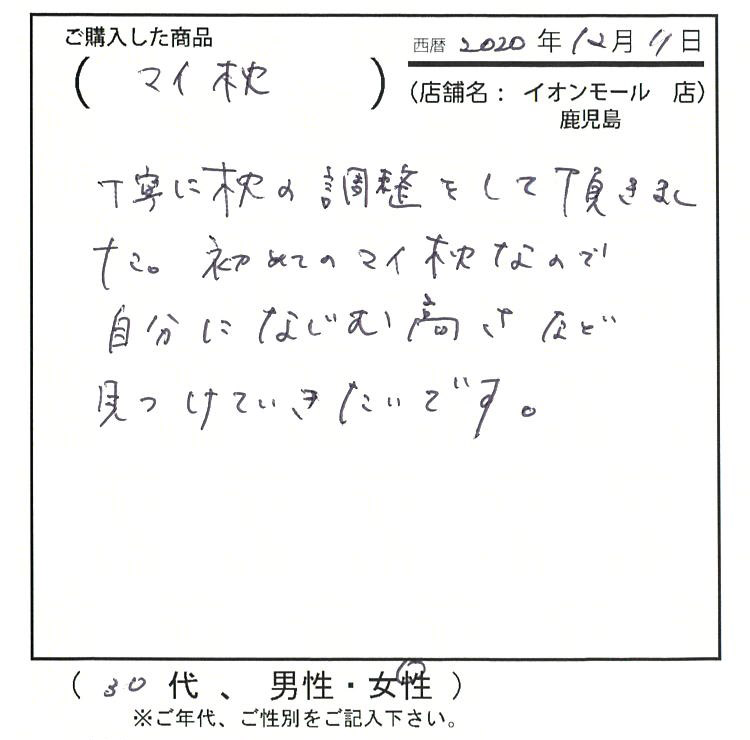 ご購入した商品
西暦 2020 年 12 月 11 日
( マイ枕 )
(店舗名： イオンモール 店)
鹿児島
丁寧に枕の調整をして頂きまし
た。初めてのマイ枕なので
自分になじむ高さなど
見つけていきたいです。
( 30 代 、 男性・女性 )
※ご年代、ご性別をご記入下さい。